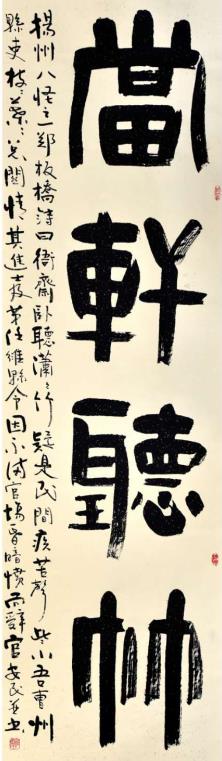 當軒聽竹
揚州八怪之郑板橋詩曰衙齋臥聽瀟〻竹疑是民間疾苦聲些小吾曹州
縣吏枝葉〻總關情其進士及第任維縣令因不滿官場昏暗憤而辭官安民並書